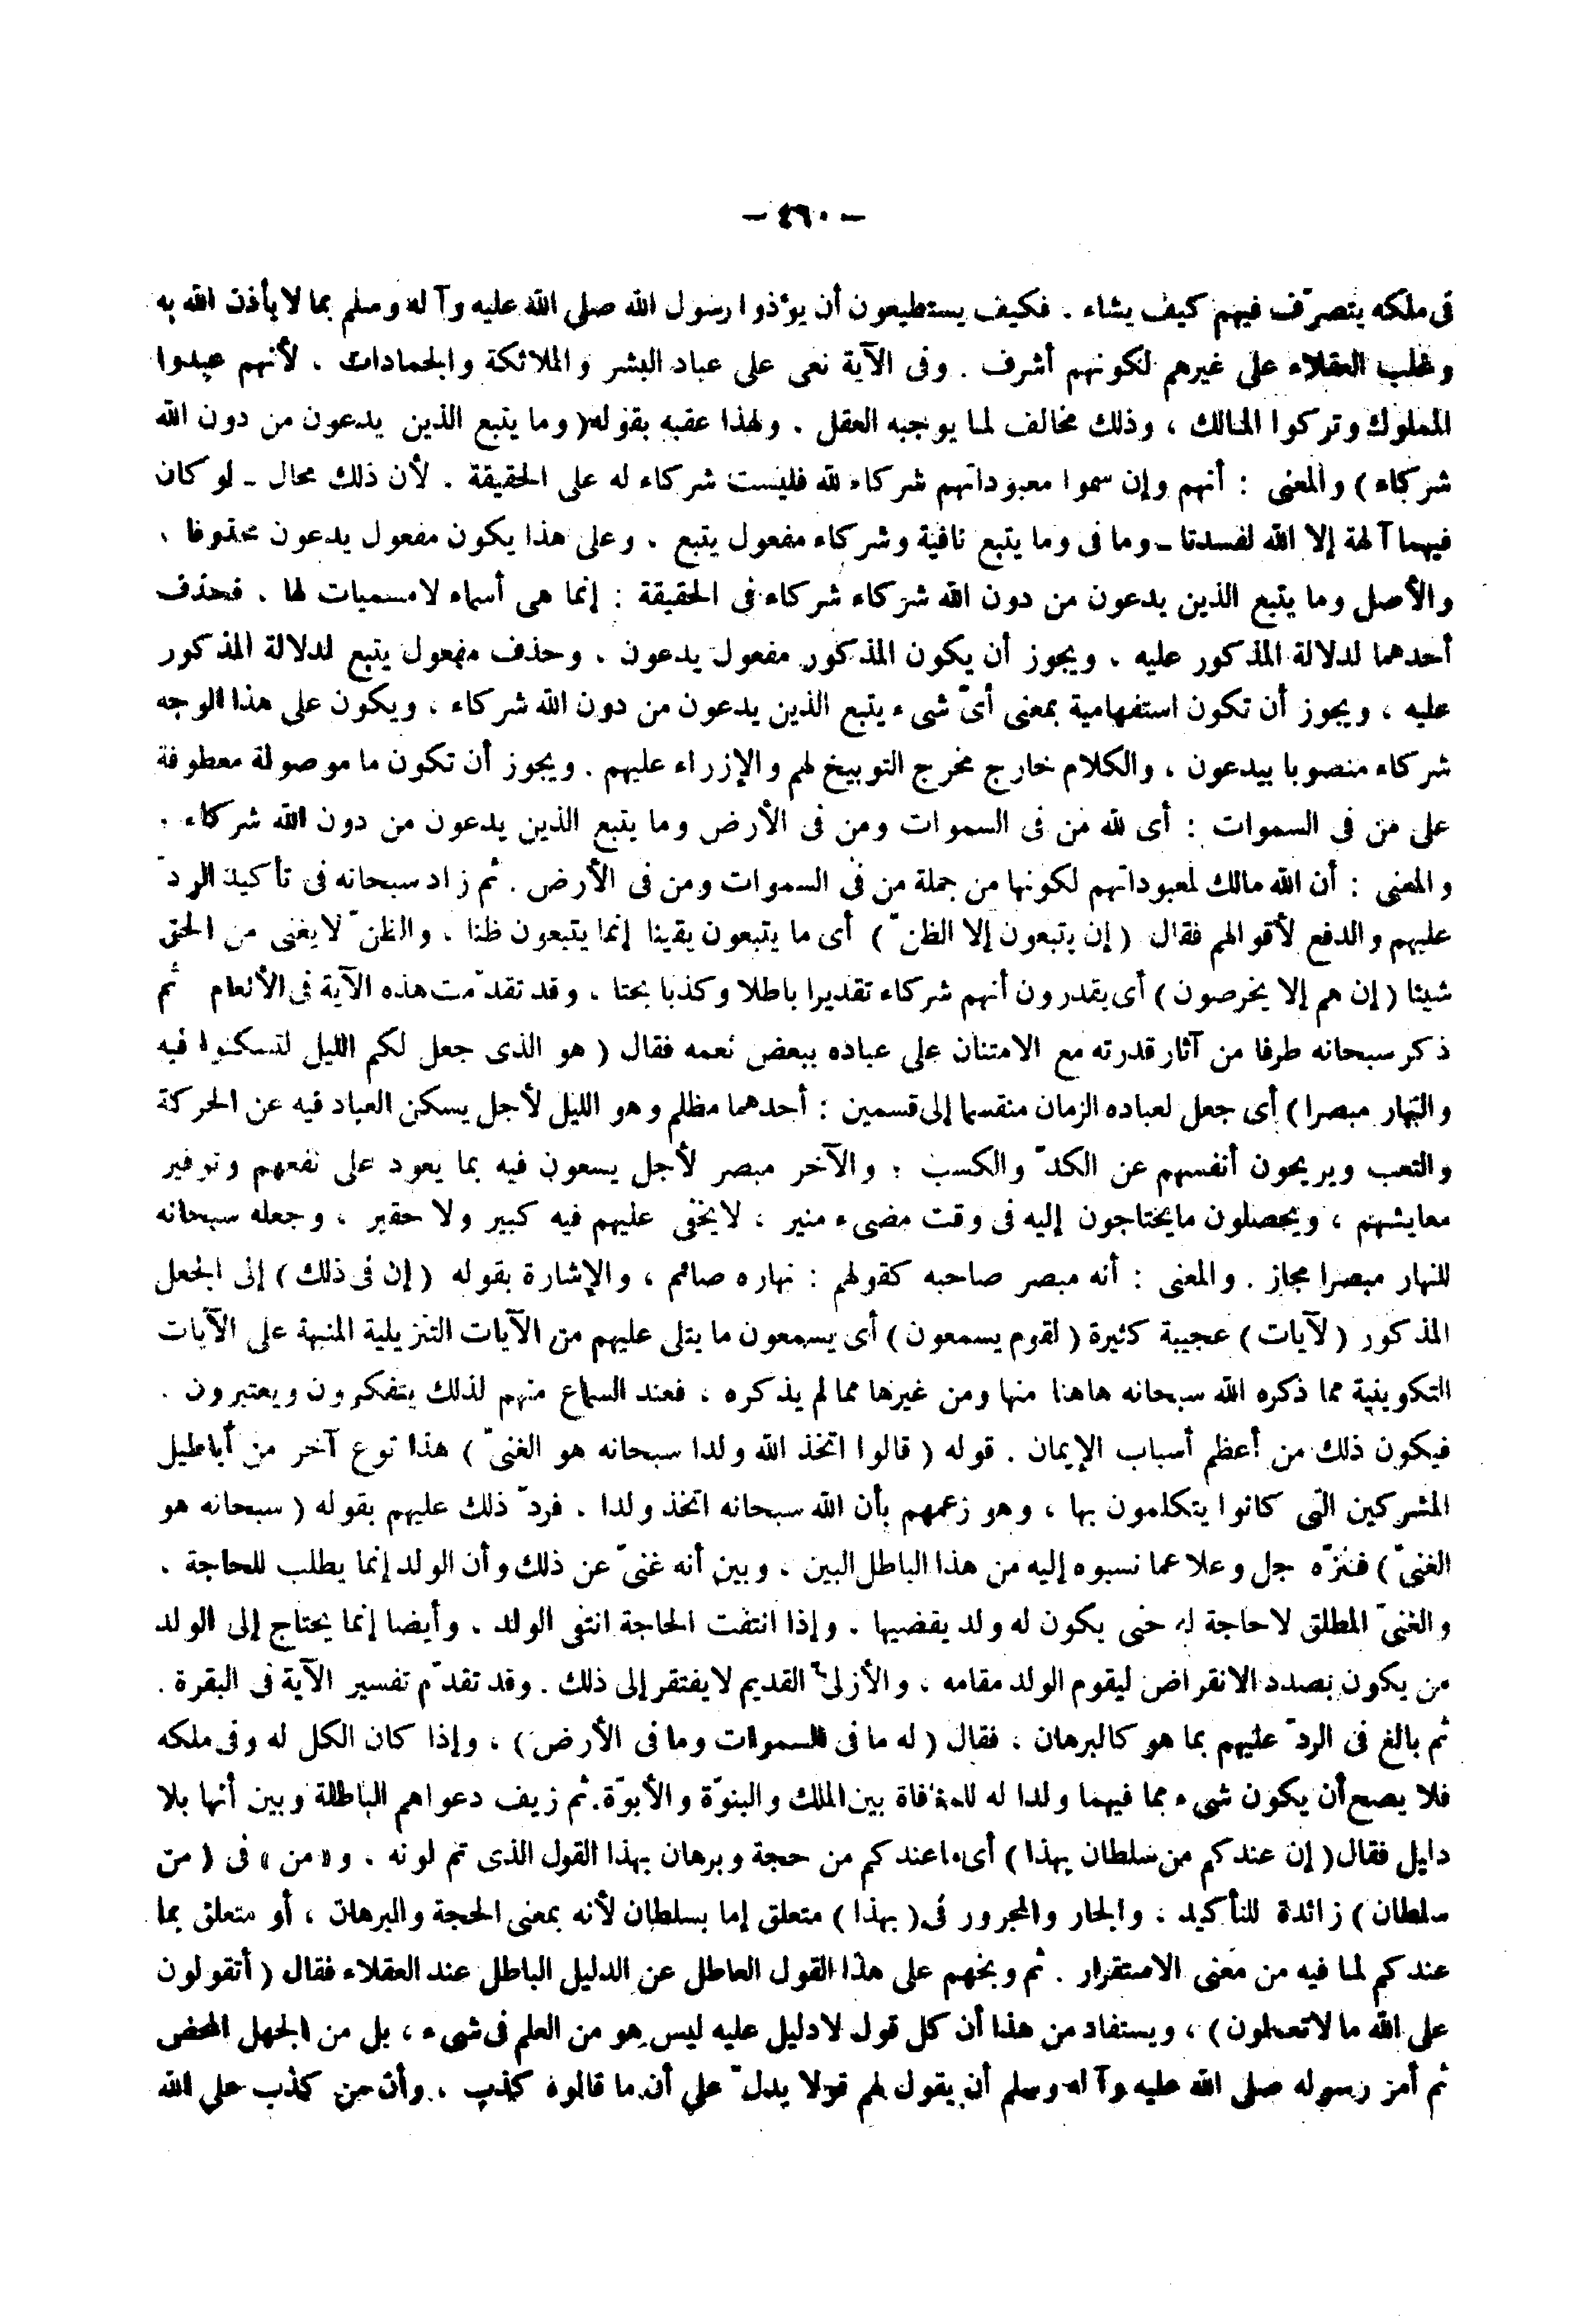 - ٤٦٠ -
فى ملكه يتصرّف فيهم كيف يشاء . فكيف يستطيعون أن يؤذوا رسول الله صلى الله عليه وآله وسلم بما لا يأذن الله به
وغلب العقلاء على غيرهم لكونهم أشرف . وفى الآية نعى على عباد البشر والملائكة والجمادات ، لأنهم عبدوا
المملوك وتركوا المالك ، وذلك مخالف لما يوجبه العقل . ولهذا عقبه بقوله ( وما يتبع الذين يدعون من دون الله
شركاء ) والمعنى : أنهم وإن سموا معبوداتهم شركاء لله فليست شركاء له على الحقيقة . لأن ذلك محال - لو كان
فيهما آلهة إلا الله لفسدتا - وما فى وما يتبع نافية وشركاء مفعول يتبع ، وعلى هذا يكون مفعول يدعون محذوفا ،
والأصل وما يتبع الذين يدعون من دون الله شركاء شركاء فى الحقيقة : إنما هى أسماء لا مسميات لها ، فحذف
أحدهما لدلالة المذكور عليه ، ويجوز أن يكون المذكور مفعول يدعون ، وحذف مفعول يتبع لدلالة المذكور
عليه ، ويجوز أن تكون استفهامية بمعنى أىّ شىء يتبع الذين يدعون من دون الله شركاء ، ويكون على هذا الوجه
شركاء منصوبا بيدعون ، والكلام خارج مخرج التوبيخ لهم والإزراء عليهم . ويجوز أن تكون ما موصولة معطوفة
على من فى السموات : أى لله من فى السموات ومن فى الأرض وما يتبع الذين يدعون من دون الله شركاء .
والمعنى : أن الله مالك لمعبوداتهم لكونها من جملة من فى السموات ومن فى الأرض . ثم زاد سبحانه فى تأكيد الردّ
عليهم والدفع لأقوالهم فقال ( إن يتبعون إلا الظنّ ) أى ما يتبعون يقينا إنما يتبعون ظنا ، والظنّ لا يغنى من الحق
شيئا ( إن هم إلا يخرصون ) أى يقدرون أنهم شركاء تقديرا باطلا وكذبا بحتا ، وقد تقدّمت هذه الآية فى الأنعام ثم
ذكر سبحانه طرفا من آثار قدرته مع الامتنان على عباده ببعض نعمه فقال ( هو الذى جعل لكم الليل لتسكنوا فيه
والنهار مبصرا ) أى جعل لعباده الزمان منقسما إلى قسمين : أحدهما مظلم وهو الليل لأجل يسكن العباد فيه عن الحركة
والتعب ويريحون أنفسهم عن الكدّ والكسب : والآخر مبصر لأجل يسعون فيه بما يعود على نفعهم وتوفير
معايشهم ، ويحصلون ما يحتاجون إليه فى وقت مضىء منير ، لا يخفى عليهم فيه كبير ولا حقير ، وجعله سبحانه
للنهار مبصرا مجاز . والمعنى : أنه مبصر صاحبه كقولهم : نهاره صائم ، والإشارة بقوله ( إن فى ذلك ) إلى الجعل
المذكور ( لآيات ) عجيبة كثيرة ( لقوم يسمعون ) أى يسمعون ما يتلى عليهم من الآيات التنزيلية المنبهة على الآيات
التكوينية مما ذكره الله سبحانه هاهنا منها ومن غيرها مما لم يذكره ، فعند السماع منهم لذلك يتفكرون ويعتبرون .
فيكون ذلك من أعظم أسباب الإيمان . قوله ( قالوا اتخذ الله ولدا سبحانه هو الغنىّ ) هذا نوع آخر من أباطيل
المشركين التى كانوا يتكلمون بها ، وهو زعمهم بأن الله سبحانه اتخذ ولدا . فردّ ذلك عليهم بقوله ( سبحانه هو
الغنىّ ) فتنزّه جل وعلا عما نسبوه إليه من هذا الباطل البين ، وبين أنه غنىّ عن ذلك وأن الولد إنما يطلب للحاجة .
والغنىّ المطلق لا حاجة له حتى يكون له ولد يقضيها . وإذا انتفت الحاجة انتفى الولد ، وأيضا إنما يحتاج إلى الولد
من يكون بصدد الانقراض ليقوم الولد مقامه ، والأزلىّ القديم لا يفتقر إلى ذلك . وقد تقدّم تفسير الآية فى البقرة .
ثم بالغ فى الردّ عليهم بما هو كالبرهان ، فقال ( له ما فى السموات وما فى الأرض ) ، وإذا كان الكل له وفى ملكه
فلا يصح أن يكون شىء مما فيهما ولدا له للمنافاة بين الملك والبنوّة والأبوّة . ثم زيف دعواهم الباطلة وبين أنها بلا
دليل فقال ( إن عندكم من سلطان بهذا ) أى ما عندكم من حجة وبرهان بهذا القول الذى تقولونه ، و « من » فى ( من
سلطان ) زائدة للتأكيد ، والجار والمجرور فى ( بهذا ) متعلق إما بسلطان لأنه بمعنى الحجة والبرهان ، أو متعلق بما
عندكم لما فيه من معنى الاستقرار . ثم وبخهم على هذا القول العاطل عن الدليل الباطل عند العقلاء فقال ( أتقولون
على الله ما لا تعلمون ) ، ويستفاد من هذا أن كل قول لا دليل عليه ليس هو من العلم فى شىء ، بل من الجهل المحض
ثم أمر رسوله صلى الله عليه وآله وسلم أن يقول لهم قولا يدلّ على أن ما قالوه كذب ، وأن من كذب على الله